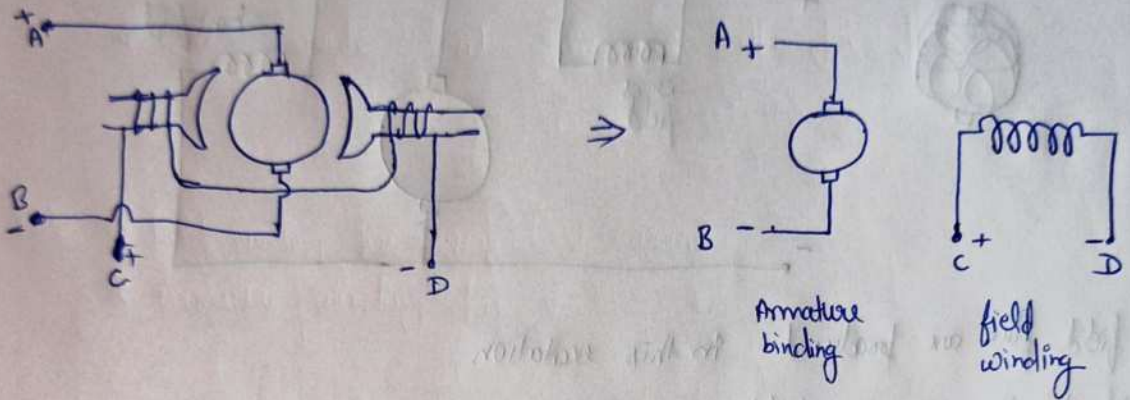 +
A
B
-
C +
- D
⇒
A +
B -
C +
- D
Armature
binding
field
winding